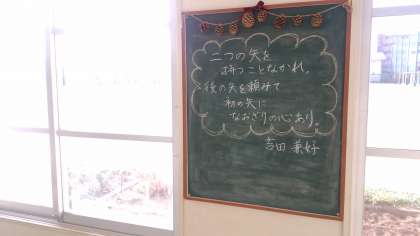 二つの矢を
持つことなかれ。
後の矢を頼みて
初の矢に
なおざりの心あり。
吉田 兼好